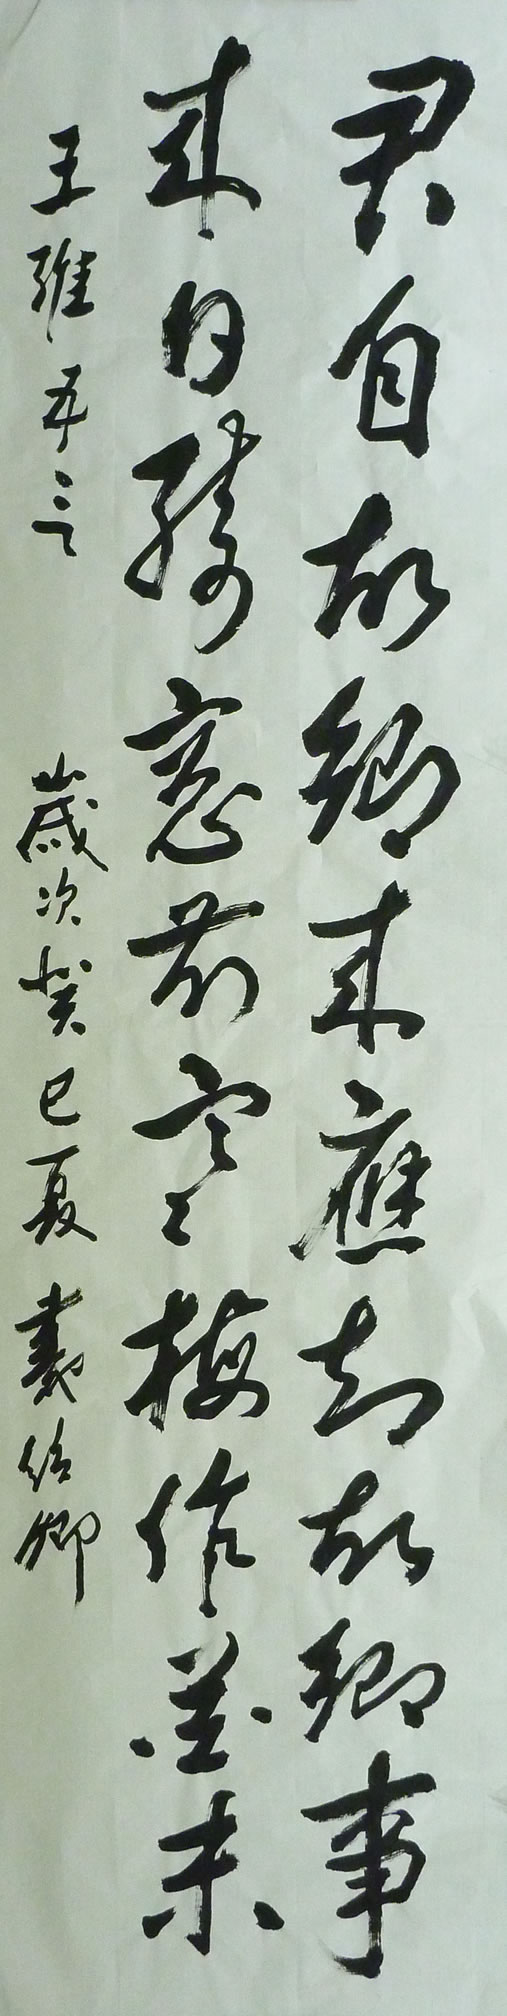 君自故鄉來應知故鄉事
來日綺窓前寒梅作花未
王維五言 歲次癸巳夏 卿